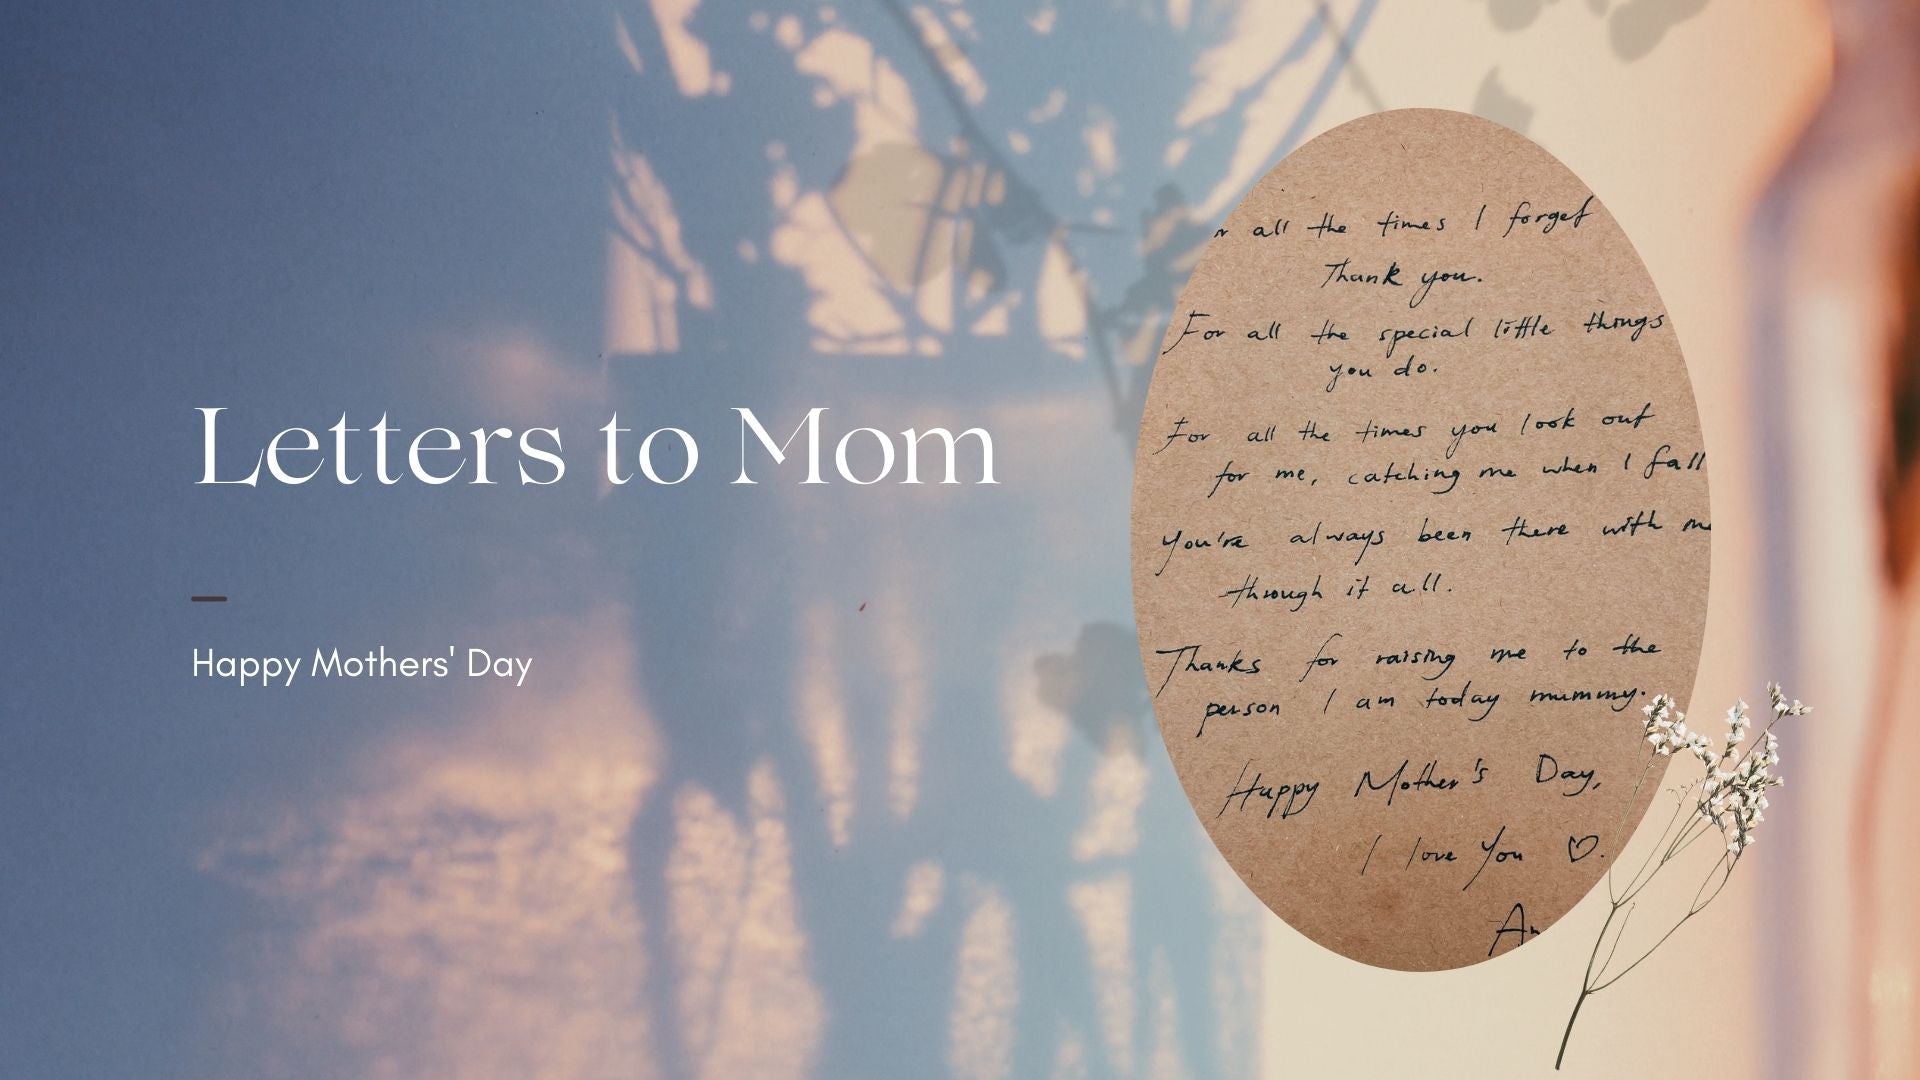 Letters to Mom
Happy Mothers' Day
all the times I forget
Thank you.
For all the special little things
you do.
For all the times you look out
for me, catching me when I fall
You're always been there with me
through it all.
Thanks for raising me to the
person I am today mummy.
Happy Mother's Day,
I love You ♡.